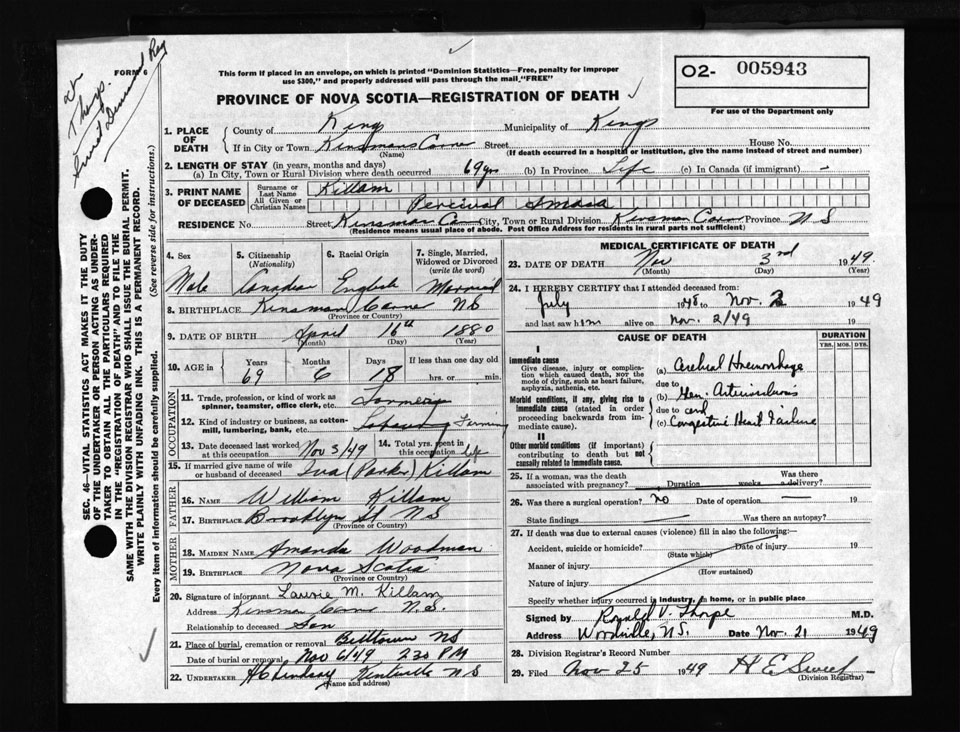 FORM 6
This form if placed in an envelope, on which is printed "Dominion Statistics—Free, penalty for improper
use $300," and properly addressed will pass through the mail "FREE"
O2- 005943
For use of the Department only
PROVINCE OF NOVA SCOTIA—REGISTRATION OF DEATH
1. PLACE OF DEATH
County of King Municipality of Kings
If in City or Town Kinsmans Corner Street House No.
(Name) (If death occurred in a hospital or institution, give the name instead of street and number)
2. LENGTH OF STAY (in years, months and days)
(a) In City, Town or Rural Division where death occurred 69 yrs (b) In Province Life (c) In Canada (if immigrant) -
3. PRINT NAME OF DECEASED
Surname or Last Name Killam
All Given or Christian Names Percival
RESIDENCE No. Street Kinsman Cor City, Town or Rural Division Kinsman Corner Province N S
(Residence means usual place of abode. Post Office Address for residents in rural parts not sufficient)
4. Sex Male
5. Citizenship (Nationality) Canadian
6. Racial Origin English
7. Single, Married, Widowed or Divorced (write the word) Married
8. BIRTHPLACE Kinsman Corner N S
(Province or Country)
9. DATE OF BIRTH April 16th 1880
(Month) (Day) (Year)
10. AGE in Years 69 Months 6 Days 18 If less than one day old hrs. or min.
OCCUPATION
11. Trade, profession, or kind of work as spinner, teamster, office clerk, etc.
12. Kind of industry or business, as cotton-mill, lumbering, bank, etc.
13. Date deceased last worked at this occupation Nov 3/49
14. Total yrs. spent in this occupation life
15. If married give name of wife or husband of deceased Iva (Parker) Killam
FATHER
16. NAME William Killam
17. BIRTHPLACE Brooklyn St N S
(Province or Country)
MOTHER
18. MAIDEN NAME Amanda Woodman
19. BIRTHPLACE Nova Scotia
(Province or Country)
20. Signature of informant Laurie M. Killam
Address Kinsman Corner N.S.
Relationship to deceased Son
21. Place of burial, cremation or removal Billtown NS
Date of burial or removal Nov 6/49 2.30 PM
22. UNDERTAKER H C Lindsay Kentville N S
(Name and address)
MEDICAL CERTIFICATE OF DEATH
23. DATE OF DEATH Nov 3rd 1949
(Month) (Day) (Year)
24. I HEREBY CERTIFY that I attended deceased from:
July 1948 to Nov. 2 1949
and last saw him alive on Nov. 2/49 19
CAUSE OF DEATH
DURATION
YRS. MOS. DYS.
I
Immediate cause
Give disease, injury or complication which caused death, not the mode of dying, such as heart failure, asphyxia, asthenia, etc.
(a) Cerebral Haemorrhage
due to
Morbid conditions, if any, giving rise to immediate cause (stated in order proceeding backwards from immediate cause).
(b) Gen. Arteriosclerosis
due to and
(c) Congestive Heart Failure
II
Other morbid conditions (if important) contributing to death but not causally related to immediate cause.
25. If a woman, was the death associated with pregnancy? Duration weeks Was there a delivery?
26. Was there a surgical operation? no Date of operation —
State findings Was there an autopsy?
27. If death was due to external causes (violence) fill in also the following:
Accident, suicide or homicide? Date of injury 19
(State which)
Manner of injury
(How sustained)
Nature of injury
Specify whether injury occurred in industry, in home, or in public place
Signed by Ronald V. Thorpe M.D.
Address Woodville, N.S. Date Nov. 21 1949
28. Division Registrar's Record Number
29. Filed Nov 25 1949 H E Sweet
(Division Registrar)
SEC. 46—VITAL STATISTICS ACT MAKES IT THE DUTY
OF THE UNDERTAKER OR PERSON ACTING AS UNDERTAKER TO OBTAIN ALL THE PARTICULARS REQUIRED
IN THE "REGISTRATION OF DEATH" AND TO FILE THE
SAME WITH THE DIVISION REGISTRAR WHO SHALL ISSUE THE BURIAL PERMIT.
WRITE PLAINLY WITH UNFADING INK. THIS IS A PERMANENT RECORD.
Every item of information should be carefully supplied. (See reverse side for instructions.)